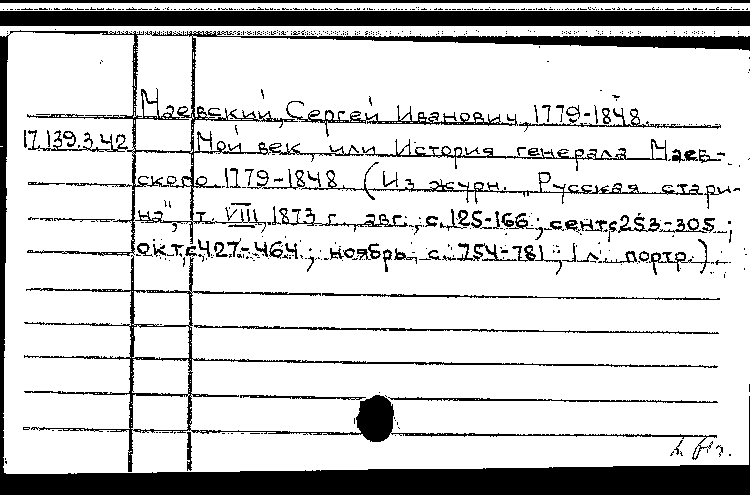 Маевский, Сергей Иванович, 1779-1848.
17.139.3.42 Мой век, или История генерала Маев-
ского. 1779-1848. (Из журн. „Русская стари-
на", т. VIII, 1873 г., авг., с. 125-166; сент. с 253-305;
окт. с 427-464; ноябрь, с. 754-781; 1 л. портр.).